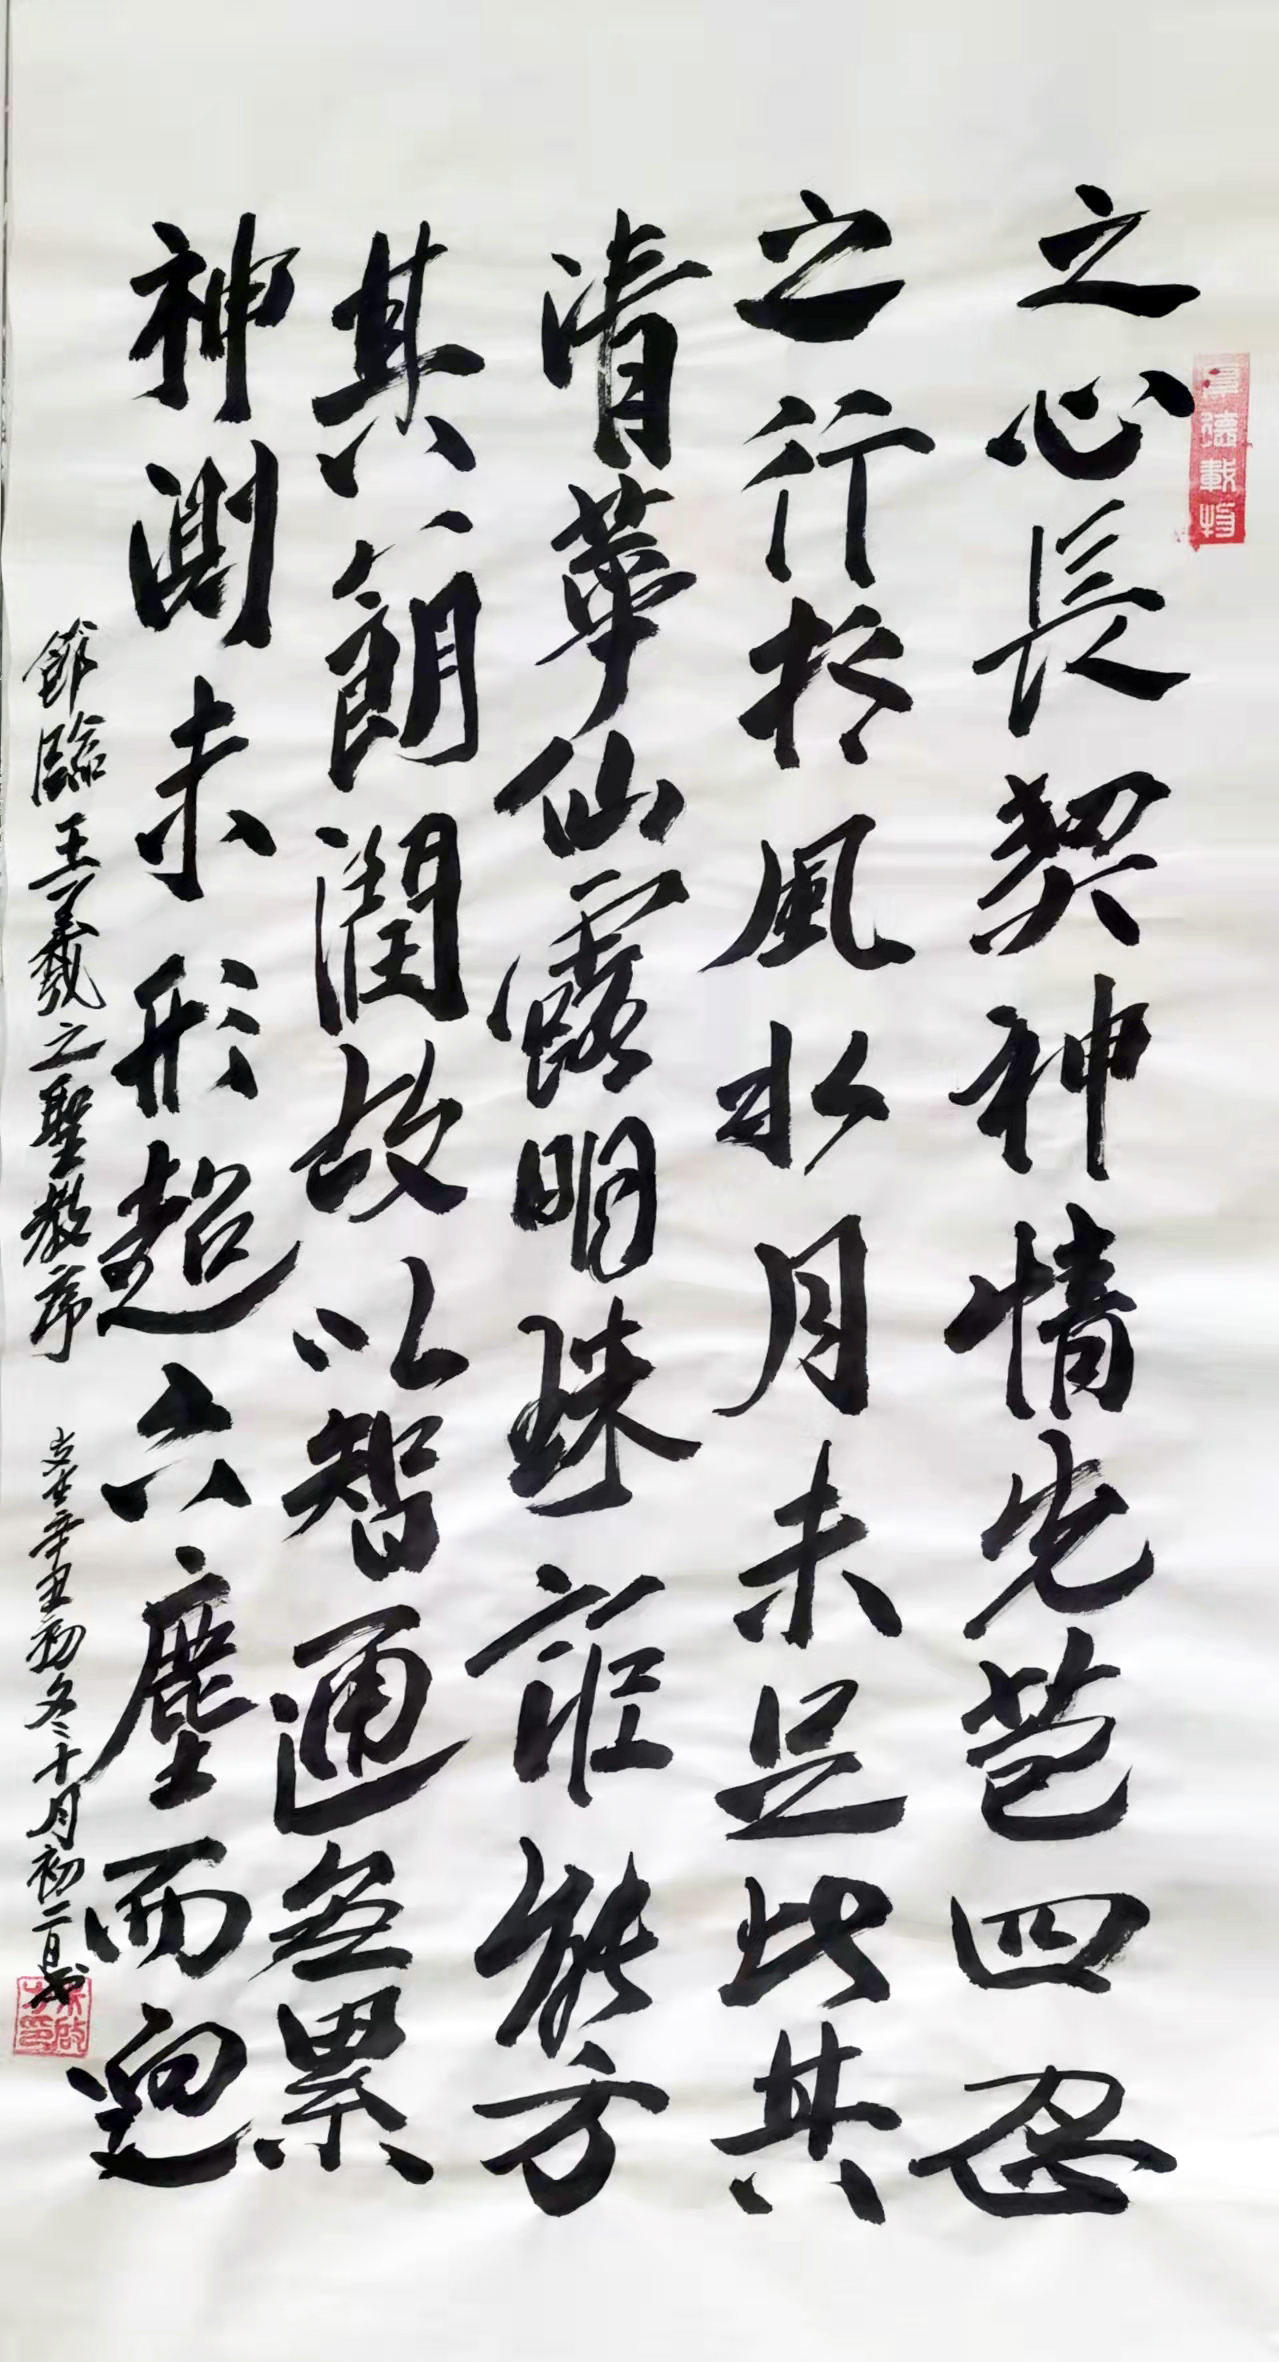 厚德載物
之心長契神情先苞四忍
之行松風水月未足比其
清華仙露明珠詎能方
其朗潤故以智通無累
神測未形超六塵而迥
節臨王羲之聖教序 歲在辛丑初冬十月初二日書